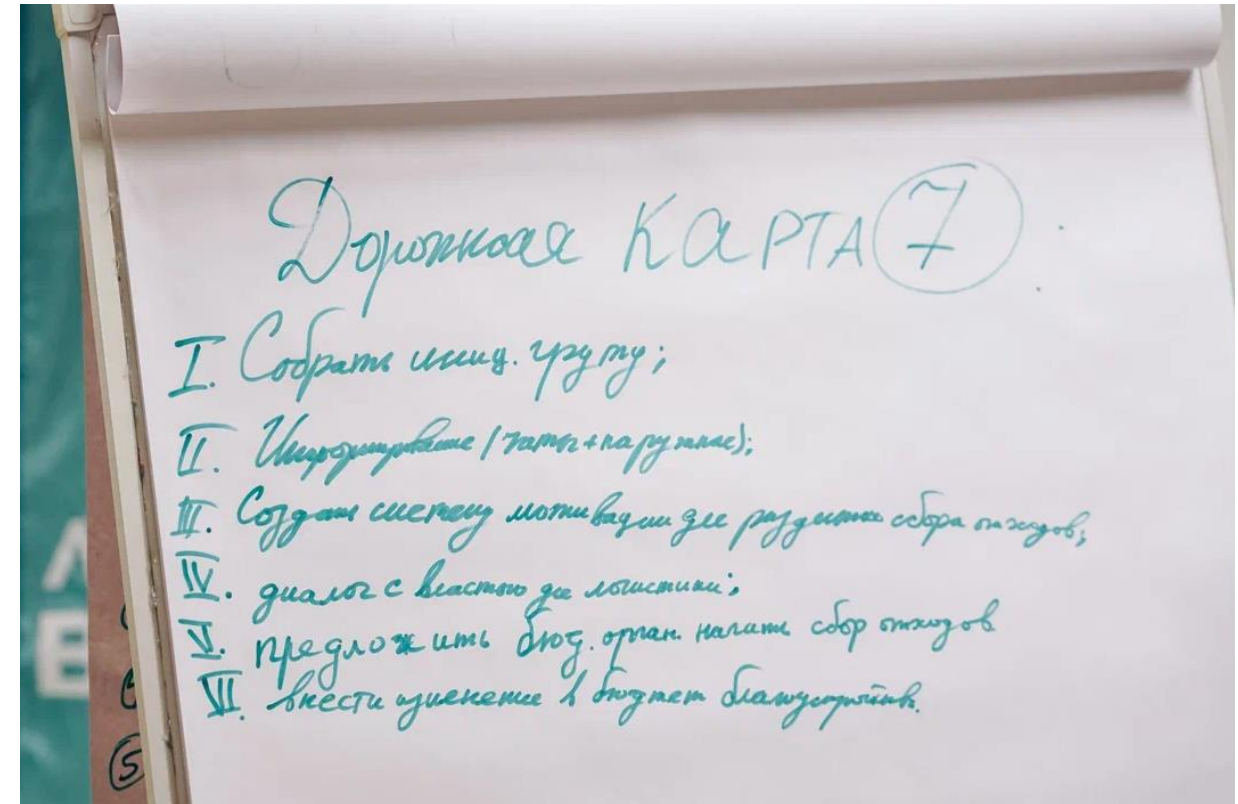 Дорожная КАРТА 7
I. Собрать иниц. групу;
II. Информирование (чаты+наружнае);
III. Создать систему мотивации для раздельно сбора отходов;
IV. диалог с властью для логистики;
V. предложить бюд. орган. начать сбор отходов
VI. внести изменение в бюджет благоустройств.
5